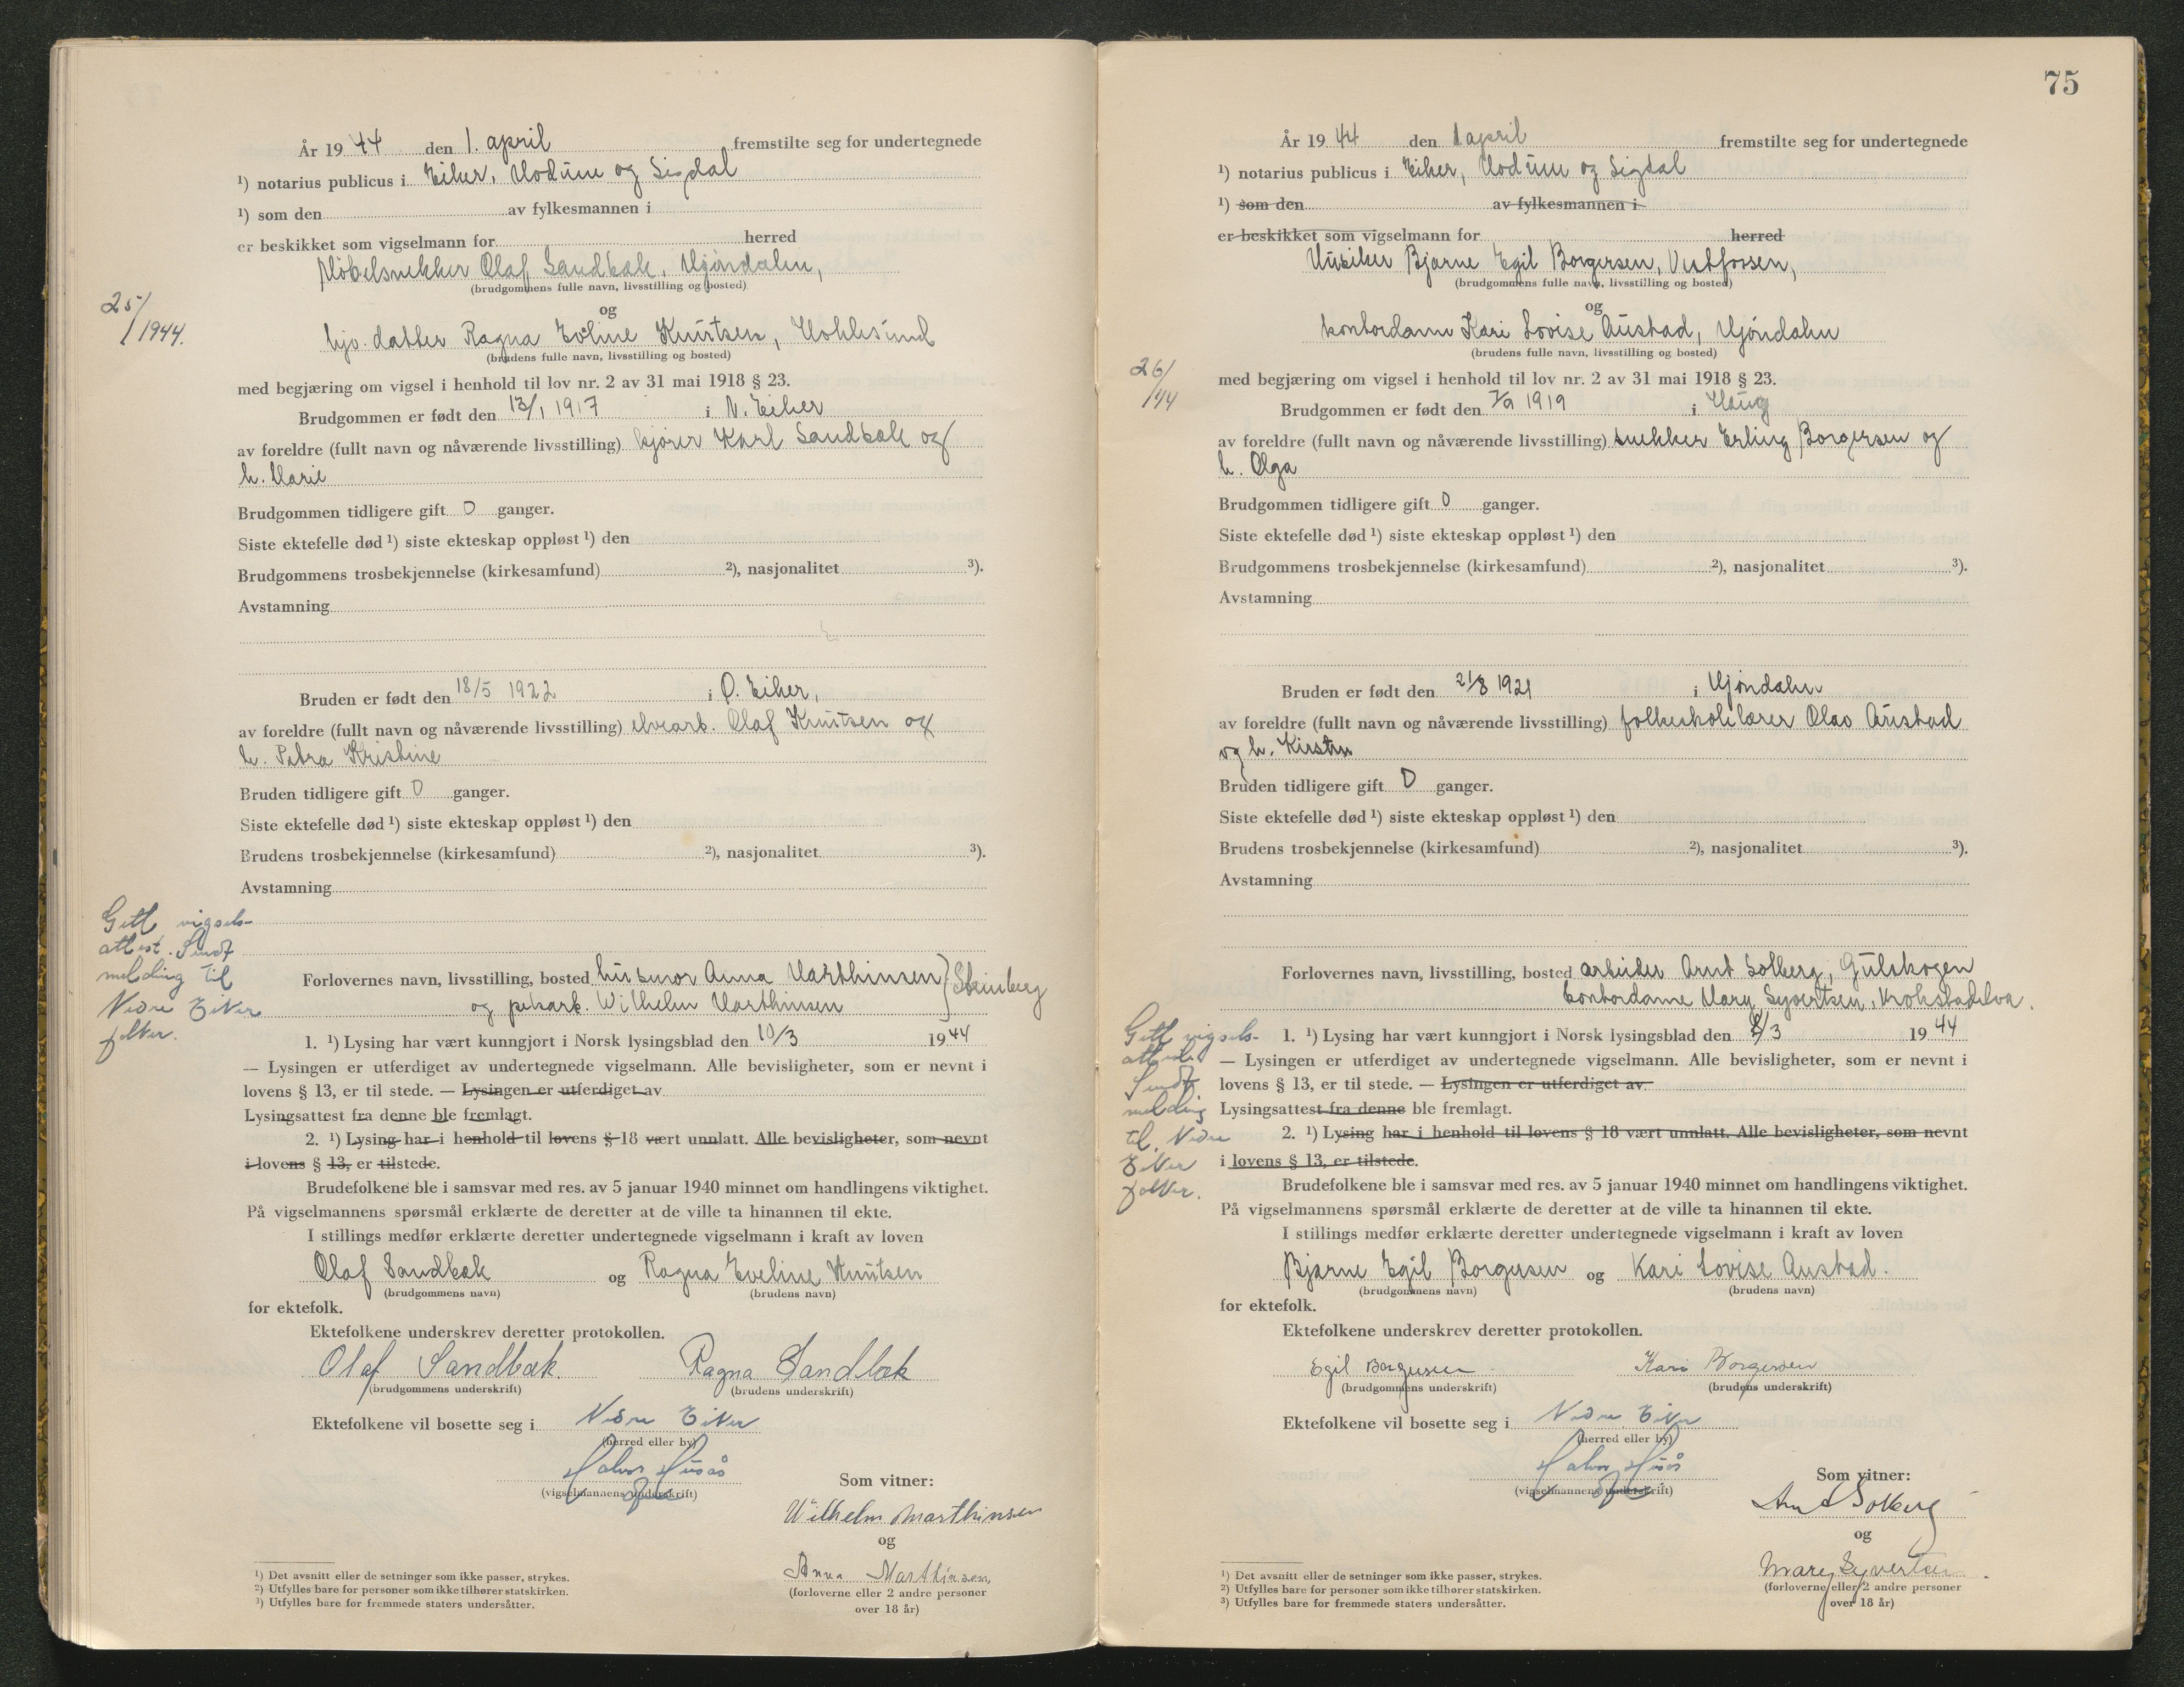 År 19 44 den 1. april fremstilte seg for undertegnede
¹) notarius publicus i Eiker, Modum og Sigdal
¹) som den av fylkesmannen i
er beskikket som vigselmann for herred
Møbelsnekker Olaf Sandbæk, Mjøndalen,
(brudgommens fulle navn, livsstilling og bosted)
og
25/1944.
hjv. datter Ragna Eveline Knutsen, Hokksund
(brudens fulle navn, livsstilling og bosted)
med begjæring om vigsel i henhold til lov nr. 2 av 31 mai 1918 § 23.
Brudgommen er født den 13/1 1917 i N. Eiker
av foreldre (fullt navn og nåværende livsstilling) kjører Karl Sandbæk og
h. Marie
Brudgommen tidligere gift 0 ganger.
Siste ektefelle død ¹) siste ekteskap oppløst ¹) den
Brudgommens trosbekjennelse (kirkesamfund) ²), nasjonalitet ³).
Avstamning
Bruden er født den 18/5 1922 i Ø. Eiker,
av foreldre (fullt navn og nåværende livsstilling) elvearb. Olaf Knutsen og
h. Petra Kristine
Bruden tidligere gift 0 ganger.
Siste ektefelle død ¹) siste ekteskap oppløst ¹) den
Brudens trosbekjennelse (kirkesamfund) ²), nasjonalitet ³).
Avstamning
Gitt vigsels-
attest. Sendt
melding til
Nedre Eiker
folker.
Forlovernes navn, livsstilling, bosted husmor Anna Marthinsen } Steinberg
og papirarb. Wilhelm Marthinsen
1. ¹) Lysing har vært kunngjort i Norsk lysingsblad den 10/3 19 44
— Lysingen er utferdiget av undertegnede vigselmann. Alle bevisligheter, som er nevnt i
lovens § 13, er til stede. — Lysingen er utferdiget av
Lysingsattest fra denne ble fremlagt.
2. ¹) Lysing har i henhold til lovens § 18 vært unnlatt. Alle bevisligheter, som nevnt
i lovens § 13, er tilstede.
Brudefolkene ble i samsvar med res. av 5 januar 1940 minnet om handlingens viktighet.
På vigselmannens spørsmål erklærte de deretter at de ville ta hinannen til ekte.
I stillings medfør erklærte deretter undertegnede vigselmann i kraft av loven
Olaf Sandbæk og Ragna Eveline Knutsen
(brudgommens navn) (brudens navn)
for ektefolk.
Ektefolkene underskrev deretter protokollen.
Olaf Sandbæk. Ragna Sandbæk
(brudgommens underskrift) (brudens underskrift)
Ektefolkene vil bosette seg i Nedre Eiker
(herred eller by)
Halvor Husås
(vigselmannens underskrift)
Som vitner:
Wilhelm Marthinsen
og
Anna Marthinsen
(forloverne eller 2 andre personer
over 18 år)
¹) Det avsnitt eller de setninger som ikke passer, strykes.
²) Utfylles bare for personer som ikke tilhører statskirken.
³) Utfylles bare for fremmede staters undersåtter.
75
År 19 44 den 1 april fremstilte seg for undertegnede
¹) notarius publicus i Eiker, Modum og Sigdal
¹) som den av fylkesmannen i
er beskikket som vigselmann for herred
Musiker Bjarne Egil Borgersen, Vestfossen,
(brudgommens fulle navn, livsstilling og bosted)
og
kontordame Kari Lovise Austad, Mjøndalen
(brudens fulle navn, livsstilling og bosted)
26/44
med begjæring om vigsel i henhold til lov nr. 2 av 31 mai 1918 § 23.
Brudgommen er født den 7/9 1919 i Haug
av foreldre (fullt navn og nåværende livsstilling) snekker Erling Borgersen og
h. Olga
Brudgommen tidligere gift 0 ganger.
Siste ektefelle død ¹) siste ekteskap oppløst ¹) den
Brudgommens trosbekjennelse (kirkesamfund) ²), nasjonalitet ³).
Avstamning
Bruden er født den 21/8 1921 i Mjøndalen
av foreldre (fullt navn og nåværende livsstilling) folkeskolelærer Olav Austad
og h. Kirsten
Bruden tidligere gift 0 ganger.
Siste ektefelle død ¹) siste ekteskap oppløst ¹) den
Brudens trosbekjennelse (kirkesamfund) ²), nasjonalitet ³).
Avstamning
Forlovernes navn, livsstilling, bosted arbeider Arnt Solberg, Gulskogen
kontordame Mary Syvertsen, Krokstadelva.
Gitt vigsels-
attest.
Sendt
melding
til Nedre
Eiker
folker.
1. ¹) Lysing har vært kunngjort i Norsk lysingsblad den /3 19 44
— Lysingen er utferdiget av undertegnede vigselmann. Alle bevisligheter, som er nevnt i
lovens § 13, er til stede. — Lysingen er utferdiget av
Lysingsattest fra denne ble fremlagt.
2. ¹) Lysing har i henhold til lovens § 18 vært unnlatt. Alle bevisligheter, som nevnt
i lovens § 13, er tilstede.
Brudefolkene ble i samsvar med res. av 5 januar 1940 minnet om handlingens viktighet.
På vigselmannens spørsmål erklærte de deretter at de ville ta hinannen til ekte.
I stillings medfør erklærte deretter undertegnede vigselmann i kraft av loven
Bjarne Egil Borgersen og Kari Lovise Austad.
(brudgommens navn) (brudens navn)
for ektefolk.
Ektefolkene underskrev deretter protokollen.
Egil Borgersen Kari Borgersen
(brudgommens underskrift) (brudens underskrift)
Ektefolkene vil bosette seg i Nedre Eiker
(herred eller by)
Halvor Husås
(vigselmannens underskrift)
Som vitner:
Arnt Solberg
og
Mary Syvertsen
(forloverne eller 2 andre personer
over 18 år)
¹) Det avsnitt eller de setninger som ikke passer, strykes.
²) Utfylles bare for personer som ikke tilhører statskirken.
³) Utfylles bare for fremmede staters undersåtter.